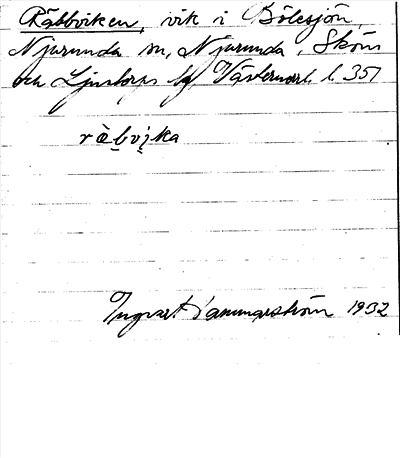 Räbbviken, vik i Bölesjön,
Njurunda sn, Njurunda, Sköns
och Ljustorps tg Västernorrl. l. 351
ràb̠vi̠ka
Ingvart Hammarström 1932